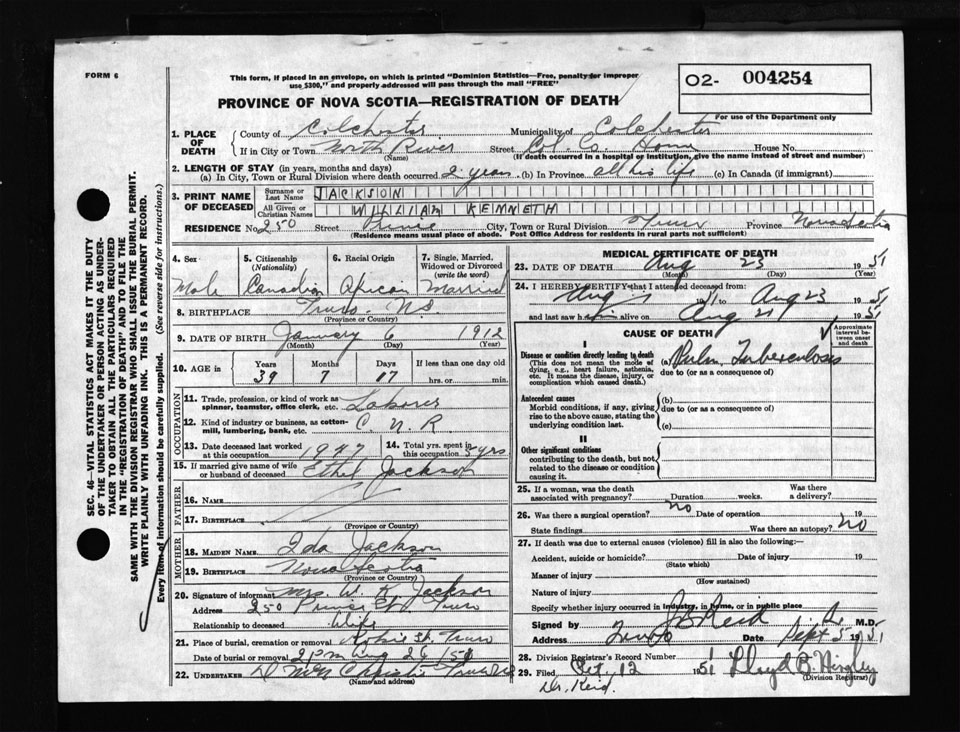 FORM 6
This form, if placed in an envelope, on which is printed "Dominion Statistics—Free, penalty for improper
use $300," and properly addressed will pass through the mail "FREE"
O2- 004254
PROVINCE OF NOVA SCOTIA—REGISTRATION OF DEATH
For use of the Department only
1. PLACE OF DEATH { County of Colchester Municipality of Colchester
If in City or Town North River (Name) Street Col. Co. Home House No.
(If death occurred in a hospital or institution, give the name instead of street and number)
2. LENGTH OF STAY (in years, months and days)
(a) In City, Town or Rural Division where death occurred 2 years (b) In Province all his life (c) In Canada (if immigrant)
3. PRINT NAME OF DECEASED { Surname or Last Name JACKSON
All Given or Christian Names WILLIAM KENNETH
RESIDENCE No. 250 Street Prince City, Town or Rural Division Truro Province Nova Scotia
(Residence means usual place of abode. Post Office Address for residents in rural parts not sufficient)
4. Sex Male
5. Citizenship (Nationality) Canadian
6. Racial Origin African
7. Single, Married, Widowed or Divorced (write the word) Married
8. BIRTHPLACE Truro N.S.
(Province or Country)
9. DATE OF BIRTH January 6 1912
(Month) (Day) (Year)
10. AGE in Years 39 Months 7 Days 17 If less than one day
hrs. or min.
OCCUPATION
11. Trade, profession, or kind of work as spinner, teamster, office clerk, etc. Laborer
12. Kind of industry or business, as cotton-mill, lumbering, bank, etc. C N R
13. Date deceased last worked at this occupation 1947
14. Total yrs. spent in this occupation 3 yrs
15. If married give name of wife or husband of deceased Ethel Jackson
FATHER
16. NAME
17. BIRTHPLACE
(Province or Country)
MOTHER
18. MAIDEN NAME Ida Jackson
19. BIRTHPLACE Nova Scotia
(Province or Country)
20. Signature of informant Mrs. W. K. Jackson
Address 250 Prince St Truro
Relationship to deceased Wife
21. Place of burial, cremation or removal Robie St. Truro
Date of burial or removal 2 PM Aug 26 1951
22. UNDERTAKER
(Name and address)
MEDICAL CERTIFICATE OF DEATH
23. DATE OF DEATH Aug 23 1951
(Month) (Day) (Year)
24. I HEREBY CERTIFY that I attended deceased from:
Aug 1951 to Aug 23 1951
and last saw him alive on Aug 21 1951
CAUSE OF DEATH
Approximate interval between onset and death
I
Disease or condition directly leading to death (a) Pulm Tuberculosis
(This does not mean the mode of dying, e.g., heart failure, asthenia, etc. It means the disease, injury, or complication which caused death.)
due to (or as a consequence of)
Antecedent causes (b)
Morbid conditions, if any, giving rise to the above cause, stating the underlying condition last.
due to (or as a consequence of)
(c)
II
Other significant conditions
contributing to the death, but not related to the disease or condition causing it.
25. If a woman, was the death associated with pregnancy? Duration weeks. Was there a delivery?
26. Was there a surgical operation? no Date of operation 19
State findings Was there an autopsy? no
27. If death was due to external causes (violence) fill in also the following:—
Accident, suicide or homicide? Date of injury 19
(State which)
Manner of injury
(How sustained)
Nature of injury
Specify whether injury occurred in industry, in home, or in public place
Signed by J B Reid M.D.
Address Truro Date Sept 5 1951
28. Division Registrar's Record Number
29. Filed Oct. 12 1951 Lloyd B. Hingley
(Division Registrar)
Dr. Reid.
SEC. 46—VITAL STATISTICS ACT MAKES IT THE DUTY
OF THE UNDERTAKER OR PERSON ACTING AS UNDER-
TAKER TO OBTAIN ALL THE PARTICULARS REQUIRED
IN THE "REGISTRATION OF DEATH" AND TO FILE THE
SAME WITH THE DIVISION REGISTRAR WHO SHALL ISSUE THE BURIAL PERMIT.
WRITE PLAINLY WITH UNFADING INK. THIS IS A PERMANENT RECORD.
Every item of information should be carefully supplied. (See reverse side for instructions.)